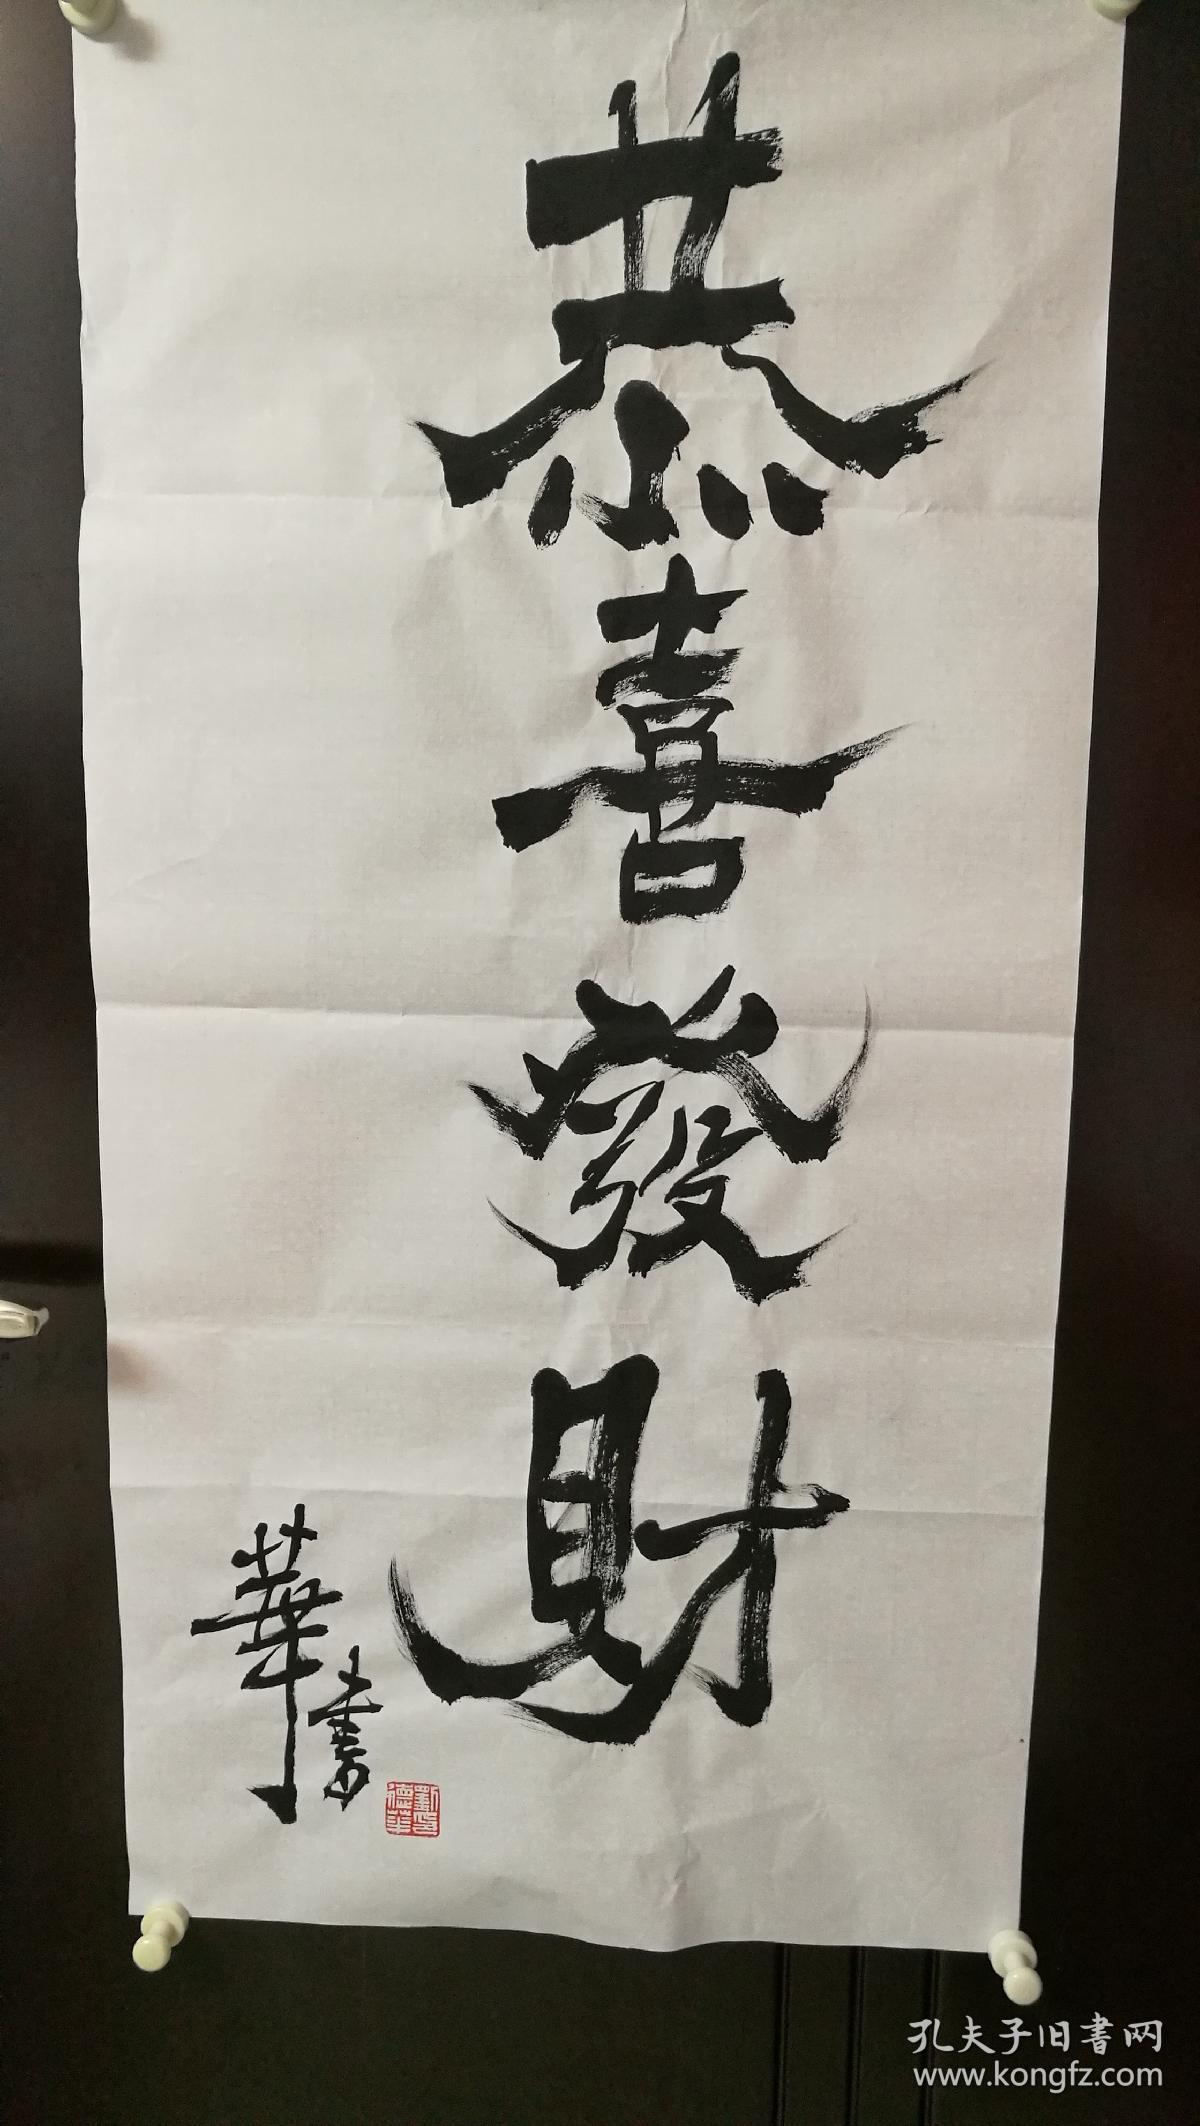 恭喜發財
華書
劉印
德華
孔夫子旧書网
www.kongfz.com